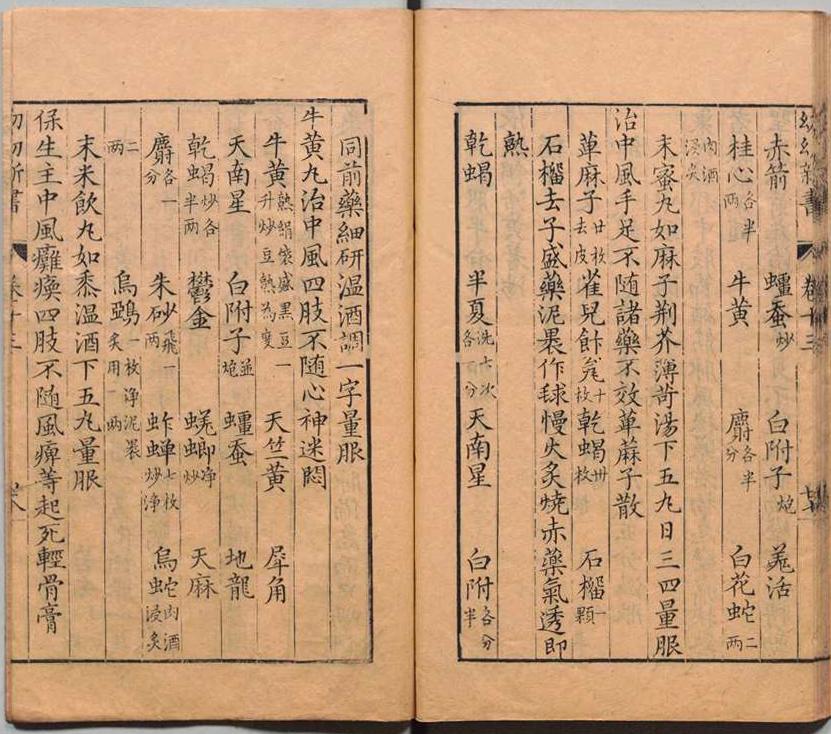 幼幼新書 卷十三
赤箭 殭蚕炒 白附子炮 羗活
桂心各半兩 牛黄 麝各半分 白花蛇二兩
肉酒浸炙
末蜜丸如麻子荆芥薄荷湯下五丸日三四量服
治中風手足不随諸藥不效萆蔴子散
萆麻子廿枚去皮 雀兒飰瓮十枚 乾蝎卅枚 石榴一顆
石榴去子盛藥泥褁作毬慢火炙燒赤藥氣透即
熟
乾蝎 半夏洗七次各一分 天南星 白附各半分
同前藥細研温酒調一字量服
牛黄丸治中風四肢不随心神迷悶
牛黄熟絹袋盛黒豆一升炒豆熟為度 天竺黄 犀角
天南星 白附子並炮 殭蚕 地龍
乾蝎炒各半兩 鬱金 蜣蜋净炒 天麻
麝各一分 朱砂飛一兩 蚱蟬七枚炒净 烏蛇肉酒浸炙
二兩 烏鵶一枚净泥褁炙用一兩
末米飲丸如黍温酒下五丸量服
保生主中風癱瘓四肢不随風痺等起死輕骨膏
幼幼新書 卷十三